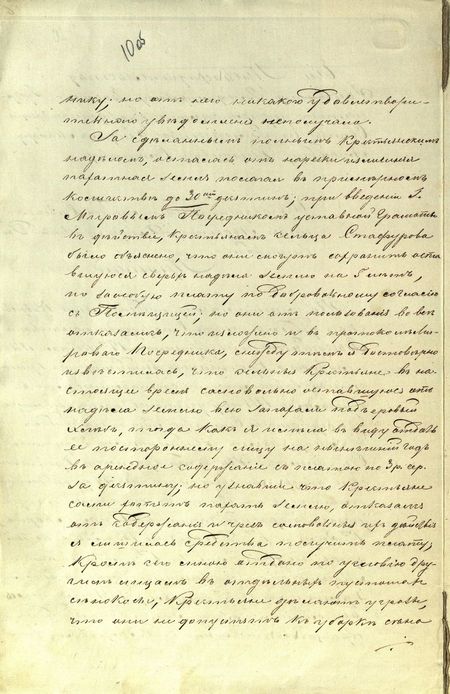 10 об
нику; но отъ него никакого удовлетвори-
тельнаго увѣдомленія неполучала.
За сдѣланнымъ полнымъ Крестьянскимъ
надѣломъ, осталась отъ нарезки излишняя
пахатная земля полагая въ примѣрномъ
количествѣ до 30ти десятинъ; при введеніи Г.
Мировымъ Посредникомъ уставной Грамоты
въ дѣйствіе, Крестьянамъ сельца Стафурова
было объяснено, что они могутъ сохранить оста-
вшуюся сверхъ надѣла землю на 5 лѣтъ,
но за особую плату по добровольному согласію
съ Помѣщицей; но они отъ пользованія ею все
отказались, что изложено и въ протоколѣ Ми-
роваго Посредника, я достовѣрно
извѣстилась, что сельца Крестьяне въ на-
стоящее время самовольно оставшуюся отъ
надѣла землю всю запахали подъ яровый
хлѣбъ, тогда какъ я имѣла въ виду отдать
ее постороннему лицу на нынѣшній годъ
въ арендное содержаніе съ платою по 3 р. сер.
за десятину; но узнавши что Крестьяне
сами хотятъ пахать землю, отказался
отъ содержанія и чрезъ самовольныя ихъ дѣйствія
я лишилась средства получить плату,
Кромѣ сего мною отдано по условію дру-
гимъ лицамъ въ отдѣльныхъ пустошахъ
сѣнокосы; Крестьяне дѣлаютъ угрозы,
что они не допустятъ къ уборкѣ сѣна